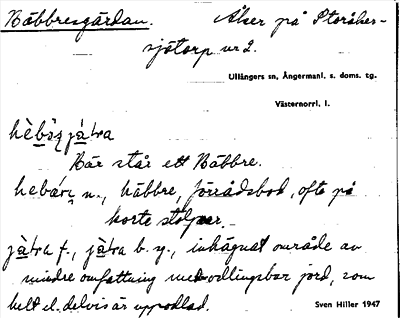 Häbbresgärdan. Åker på Storåker-
sjötorp nr 2.
Ullångers sn, Ångermanl. s. doms. tg.
Västernorrl. l.
Här står ett Häbbre.
n., häbbre, förrådsbod, ofta på
korta stolpar.
f., b. g., inhägnat område av
mindre omfattning med odlingsbar jord, som
helt el. delvis är uppodlad.
Sven Hiller 1947